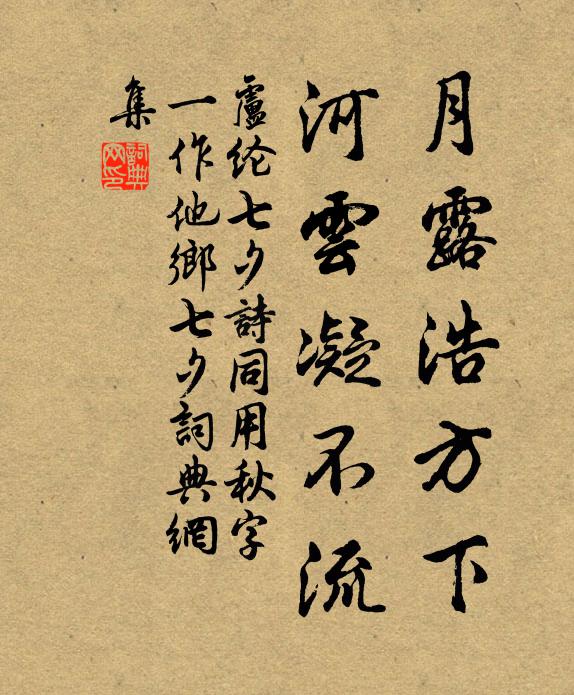 月露浩方下
河雲凝不流
盧纶七夕詩同用秋字
一作他鄉七夕詞典網
集
詞典
网印